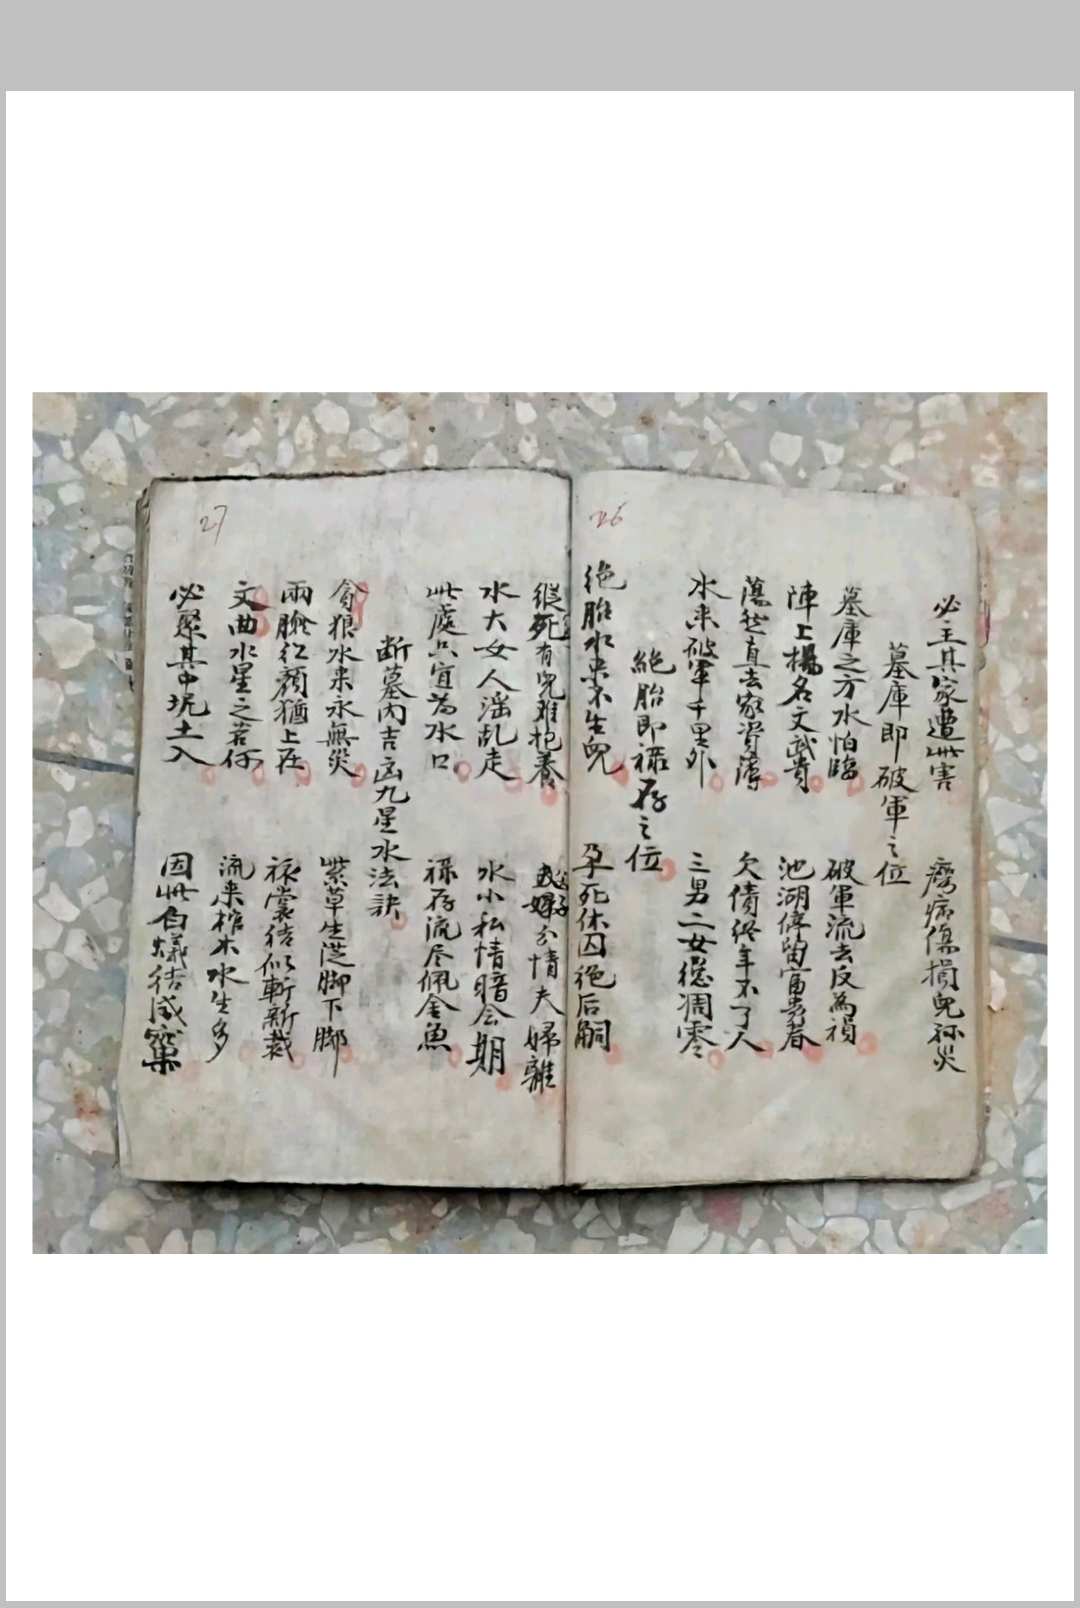 26
必主其家遭此害 癆病傷損兒孫災
墓庫即破軍之位
墓庫之方水怕臨 破軍流去反為禍
陣上揚名文武貴 池湖停留富貴春
蕩然直去家資薄 欠債終年不了人
水来破軍千里外 三男二女總凋零
絕胎即祿存之位
绝胎水来不生兒 孕死休囚绝后嗣
27
縱死有兒難抱養 父子分情夫婦離
水大女人淫乱走 水小私情暗会期
此處只宜為水口 祿存流尽佩金魚
断墓內吉凶九星水法訣
貪狼水来永無災 紫草生沿脚下脚
兩臉红顏猶上在 衣裳结似斬新裁
文曲水星之若何 流来棺木水生多
必聚其中坭土入 因此白蟻结成窠